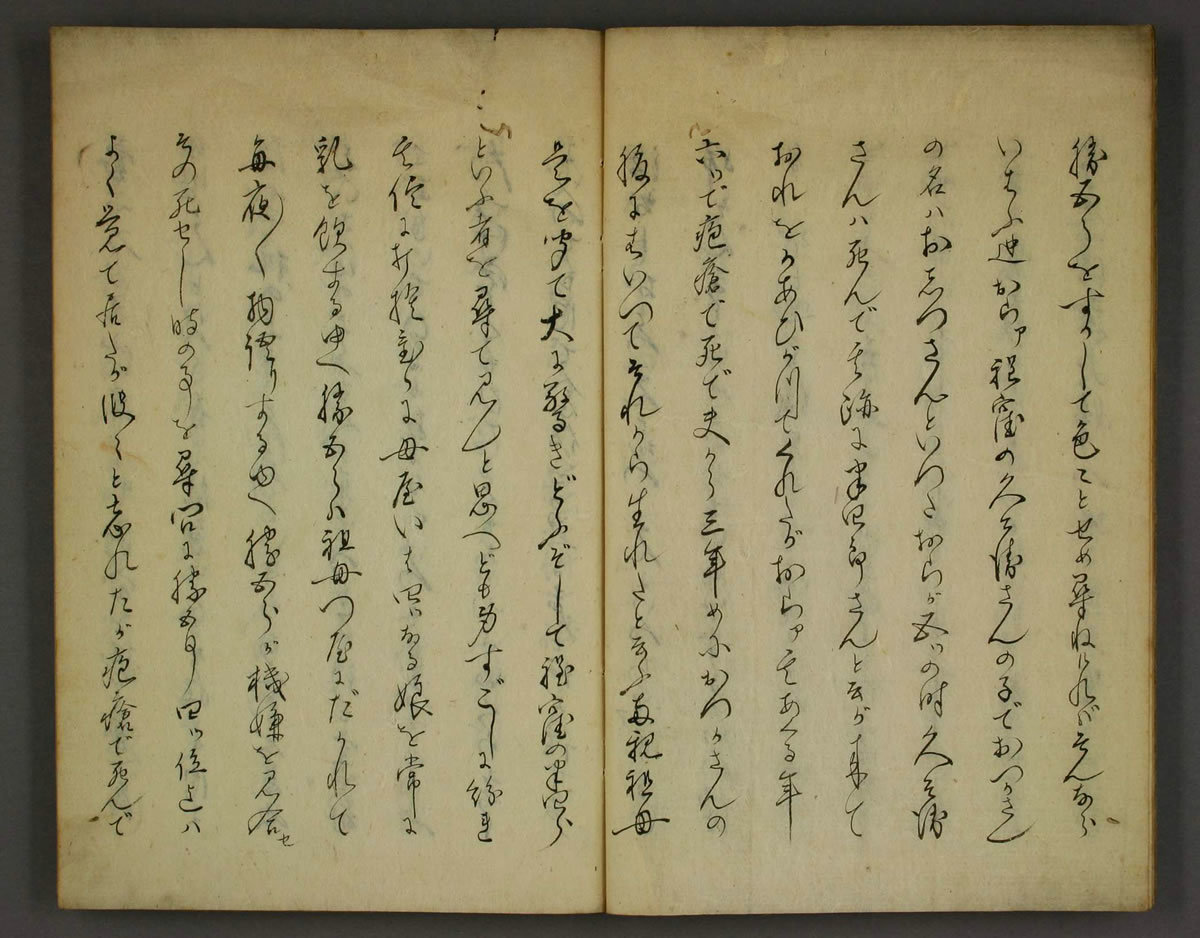 勝五郎をすかして色〻とせめ尋ねけれバそんなら
いはふ迚おらア程窪の久兵衛さんの子でおつかさん
の名ハおしづさんといつたおらが五ツの時久兵衛
さんハ死んで其跡に半四郎さんと云が来て
おれをかあひがつてくれたがおらア其あくる年
六ツで疱瘡で死で夫から三年めにおつかさんの
腹にはいつてそれから生れたと云ふ両親祖母
是を聞て大に驚きどふぞして程窪の半四郎
といふ者を尋て見んと思へども身すごしに紛れ
其侭に打捨置しに母屋いは四ツなる娘を常に
乳を飲するゆへ勝五郎ハ祖母つ屋にだかれて
毎夜〱物語りするゆへ勝五郎が機嫌を見合せ
その死せし時の事を尋問に勝五郎四ツ位迄ハ
よく覚て居たが段〻と忘れたが疱瘡で死んで